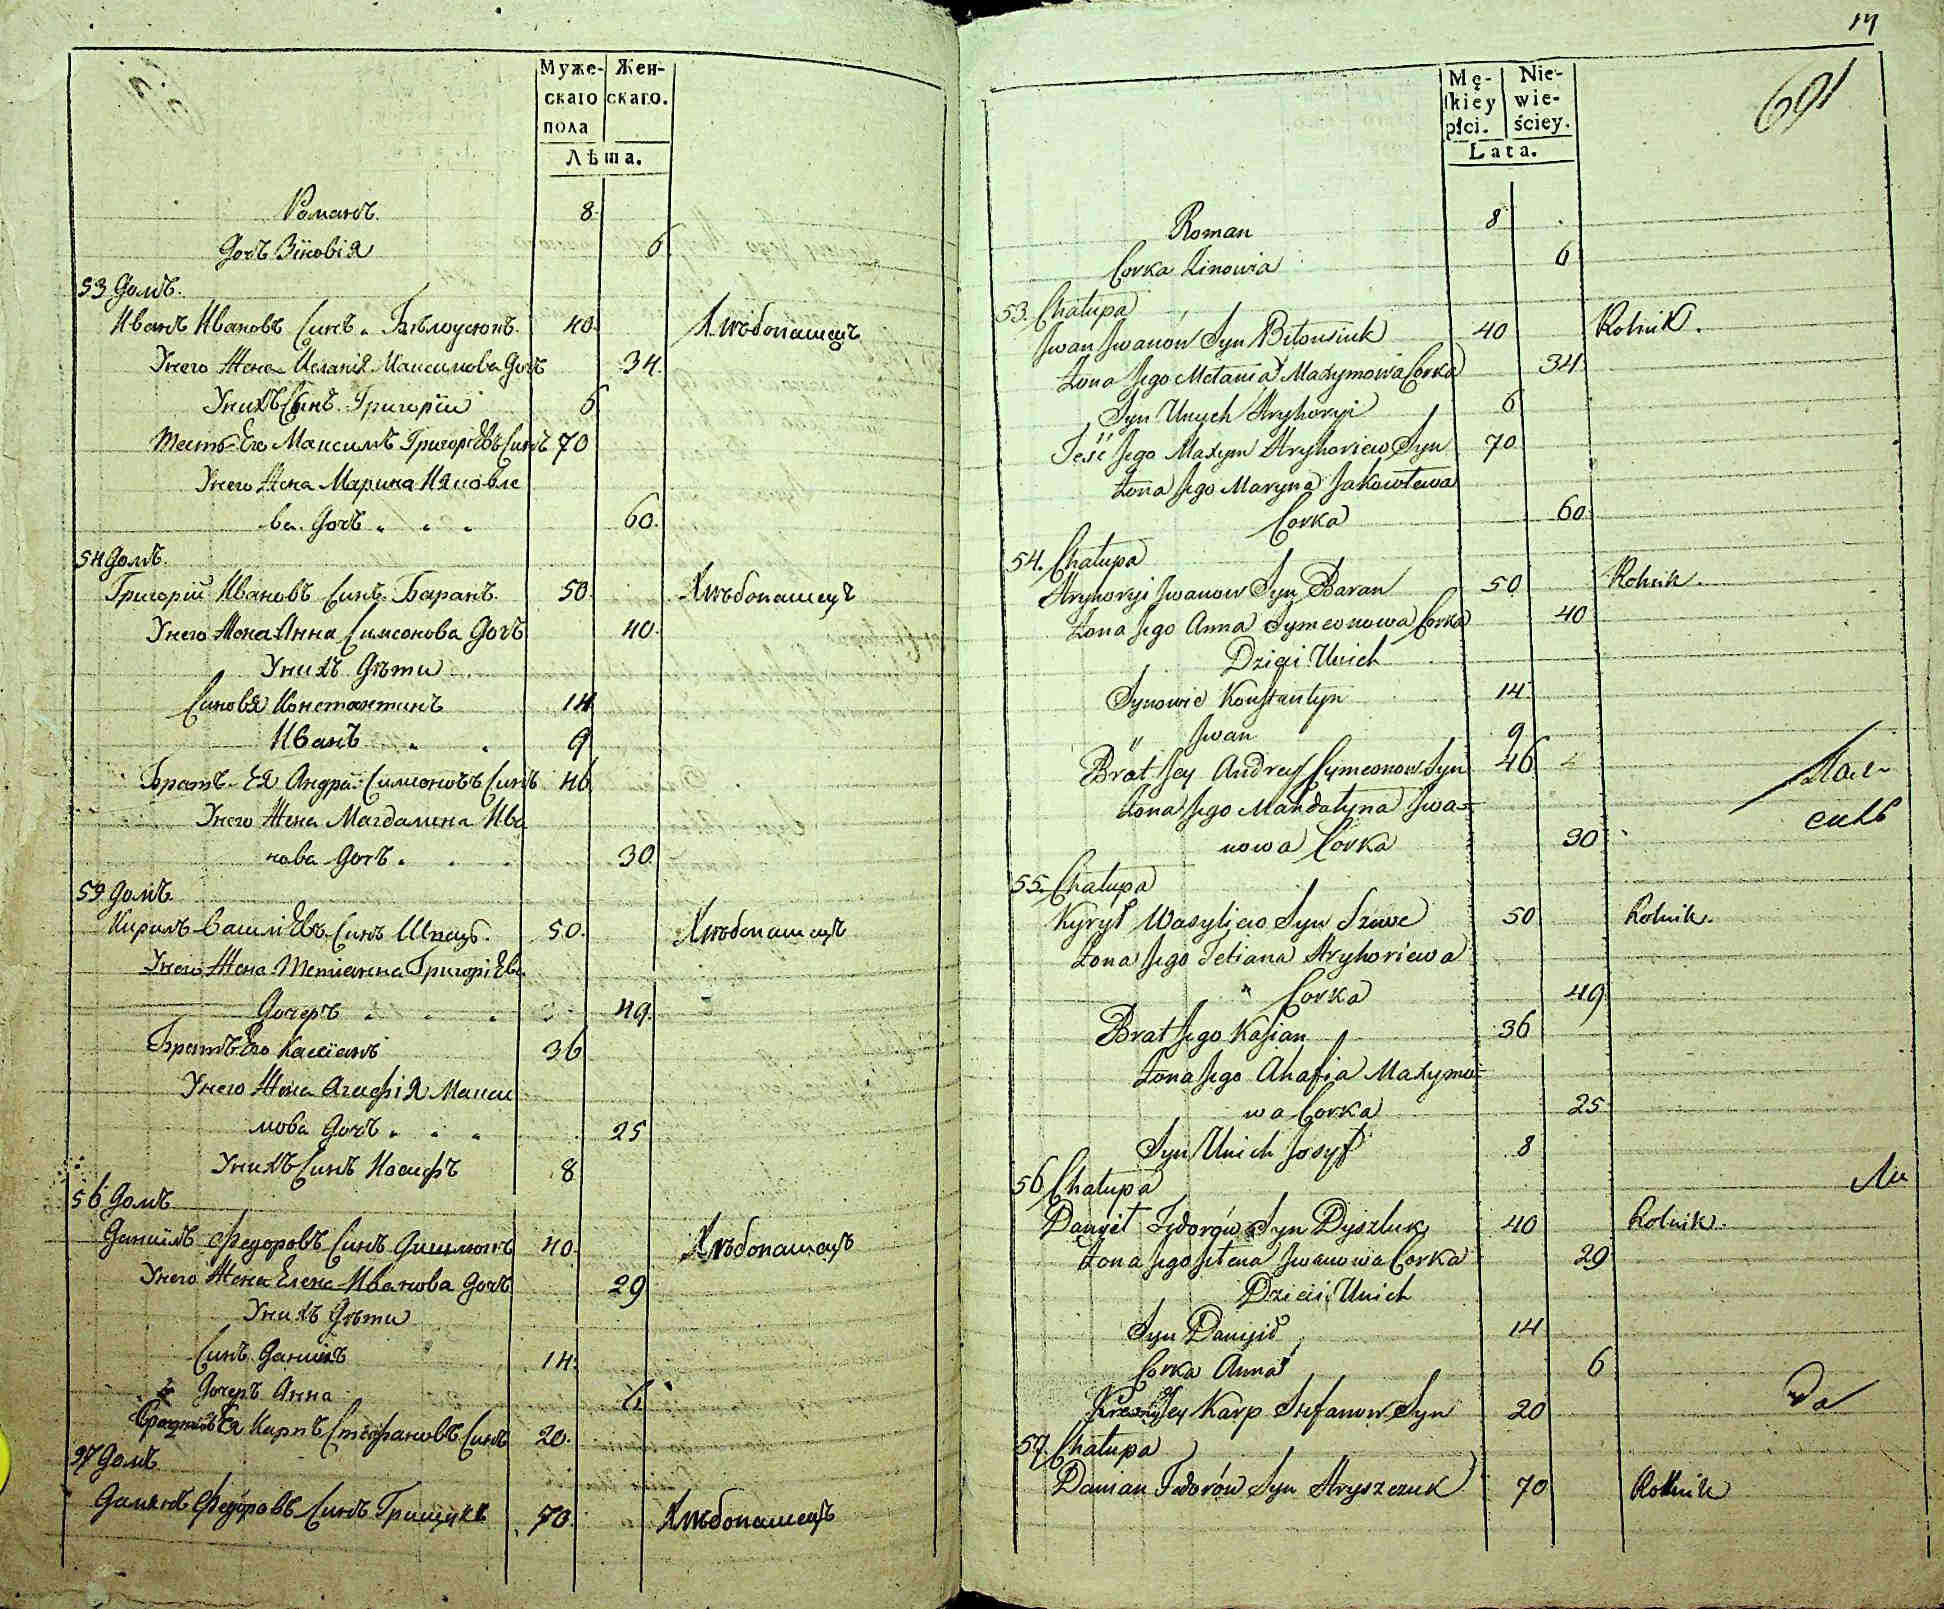 Муже-
скаго
пола
Жен-
скаго.
Лѣта.
Романъ. 8.
Дочь Зіновія 6
53 Домъ.
Иванъ Ивановъ Синъ Бѣлоусюкъ. 40. Хлѣбопашецъ
Унего Жена Меланія Максимова Дочь 34.
Унихъ Сынъ Григорій 6
Тесть Его Максимъ Григоріевъ Синъ 70
Унего Жена Марина Яковле
ва Дочь 60.
54 Домъ.
Григорій Ивановъ Синъ Баранъ. 50. Хлѣбопашецъ
Унего Жена Анна Симеонова Дочь 40.
Унихъ Дѣти
Синовя Константинъ 14
Иванъ 9
Братъ Ея Андрій Симеоновъ Синъ 46
Унего Жена Магдалина Ива
нова Дочь 30.
Домъ.
Кирилъ Василіевъ Синъ Швецъ. 50. Хлѣбопашецъ
Унего Жена Тетіанна Григоріева
Дочеръ 49.
Братъ Его Кассіанъ 36
Унего Жена Агафія Макси
мова Дочь 25
Унихъ Синъ Иосифъ 8
56 Домъ
Даніилъ Федоровъ Синъ Дишлюкъ 40. Хлѣбопашецъ
Унего Жена Елена Иванова Дочь 29
Унихъ Дѣти
Синъ Даніилъ 14.
Дочеръ Анна 6
Ея Карпъ Стефановъ Синъ 20.
Домъ
Даміянъ Федоровъ Синъ Грищукъ 70. Хлѣбопашецъ
691
Mę-
skiey
płci.
Nie-
wie-
ściey.
Lata.
Roman 8
Corka Zinowia 6
53. Chałupa
Jwan Jwanów Syn Biłousiuk 40 Rolnik.
Żona Jego Mełania Maxymowa Corka 34.
Syn Unych Hryhoryi 6
Teść Jego Maxym Hryhoriew Syn 70
Żona Jego Maryna Jakowlewa
Corka 60.
54. Chałupa
Hryhoryi Jwanow Syn Baran 50 Rolnik.
Żona Jego Anna Symeonowa Corka 40
Dzieci Unich
Synowie Konstantyn 14.
" Jwan 9
Brat Jey Andrey Symeonow Syn 46
Żona Jego Mahdałyna Jwa-
nowa Corka 30
55. Chałupa
Kyrył Wasyliew Syn Szewc 50 Rolnik.
Żona Jego Tetiana Hryhoriewa
" Corka 49
Brat Jego Kasian 36
Żona Jego Ahafia Maxymo-
wa Corka 25
Syn Unich Josyf 8
56 Chałupa
Danyił Fedorów Syn Dyszluk 40 Rolnik.
Żona Jego Jełena Jwanowa Corka 29
Dzieci Unich
Syn Danyił 14
Corka Anna 6
Jey Karp Stefanow Syn 20
57. Chałupa
Damian Fedorów Syn Hryszczuk 70 Rolnik